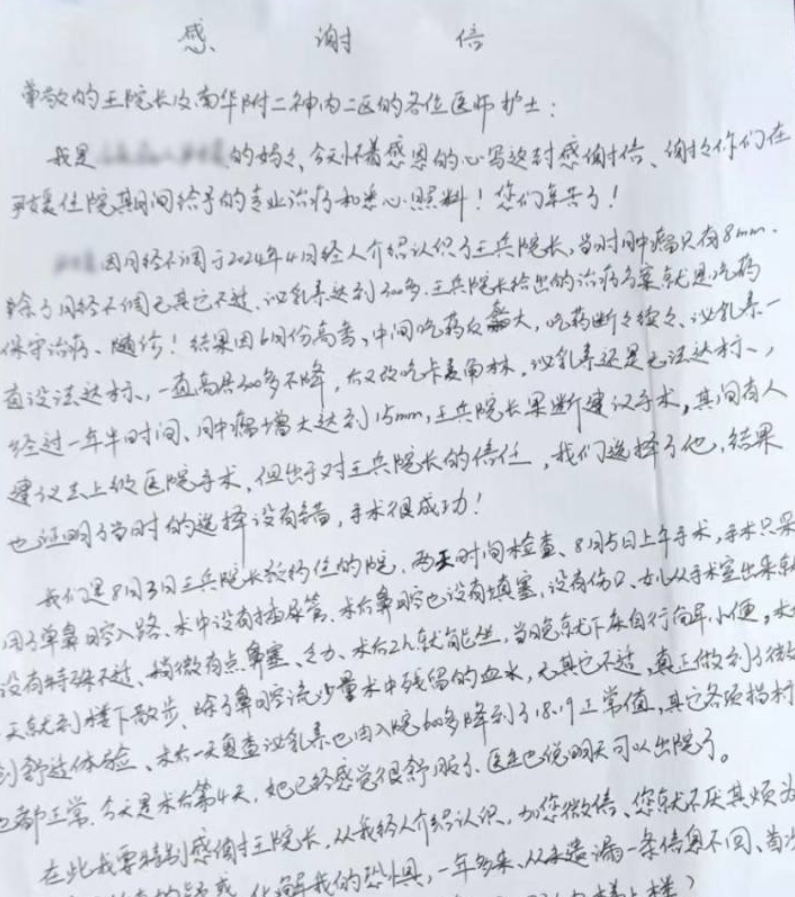 感 谢 信
尊敬的王院长及南华附二神内二区的各位医师护士:
我是 的妈妈、今天怀着感恩的心写这封感谢信、谢谢你们在
住院期间给予的专业治疗和悉心照料!您们辛苦了!
因月经不调于2024年4月经人介绍认识了王兵院长,当时瘤只有8mm.
除了月经不调无其它不适.泌乳素达到300多.王兵院长给出的治疗方案就是吃药
保守治疗、随诊!结果因6月份高考,中间吃药反 大,吃药断断续续、泌乳素一
直没法达标、一直高居300多不降,后又改吃卡麦角林,泌乳素还是无法达标、,
经过一年半时间、瘤增大达到15mm,王兵院长果断建议手术,其间有人
建议去上级医院手术,但出于对王兵院长的信任,我们选择了他,结果
也证明了当时的选择没有错,手术很成功!
我们是8月3日王兵院长预约住的院,两天时间检查、8月5日上午手术,手术只采
用了单鼻腔入路、术中没有插尿管.术后鼻腔也没有填塞,没有伤口、女儿从手术室出来就
没有特殊不适、稍微有点鼻塞、乏力、术后2h就能坐,当晚就下床自行 小便,术
天就到楼下散步,除了鼻腔流少量术中残留的血水,无其它不适,真正做到了微
到舒适体验、术后一天复查泌乳素也由入院600多降到了18.19正常值,其它各项指标
也都正常.今天是术后第4天,她已经感觉很舒服了、医生也说明天可以出院了。
在此我要特别感谢王院长,从我经人介绍认识,加您微信、您就不厌其烦为
的疑惑,化解我的恐惧,一年多来、从未遗漏一条信息不回、首次